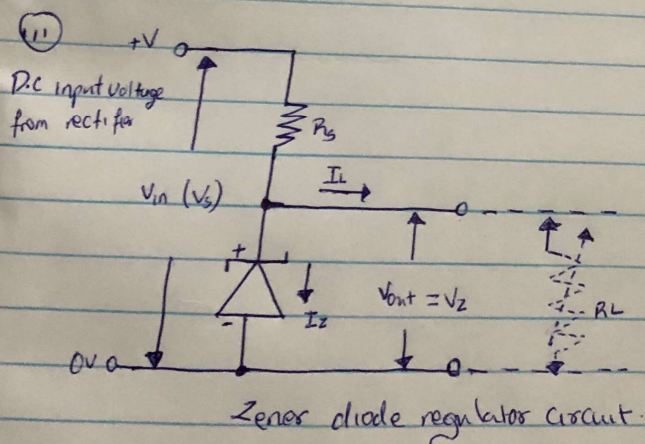 iii
+V
D.C input voltage
from rectifier
Rs
IL
Vin (Vs)
+
-
Iz
Vout = Vz
RL
0V
Zener diode regulator circuit.